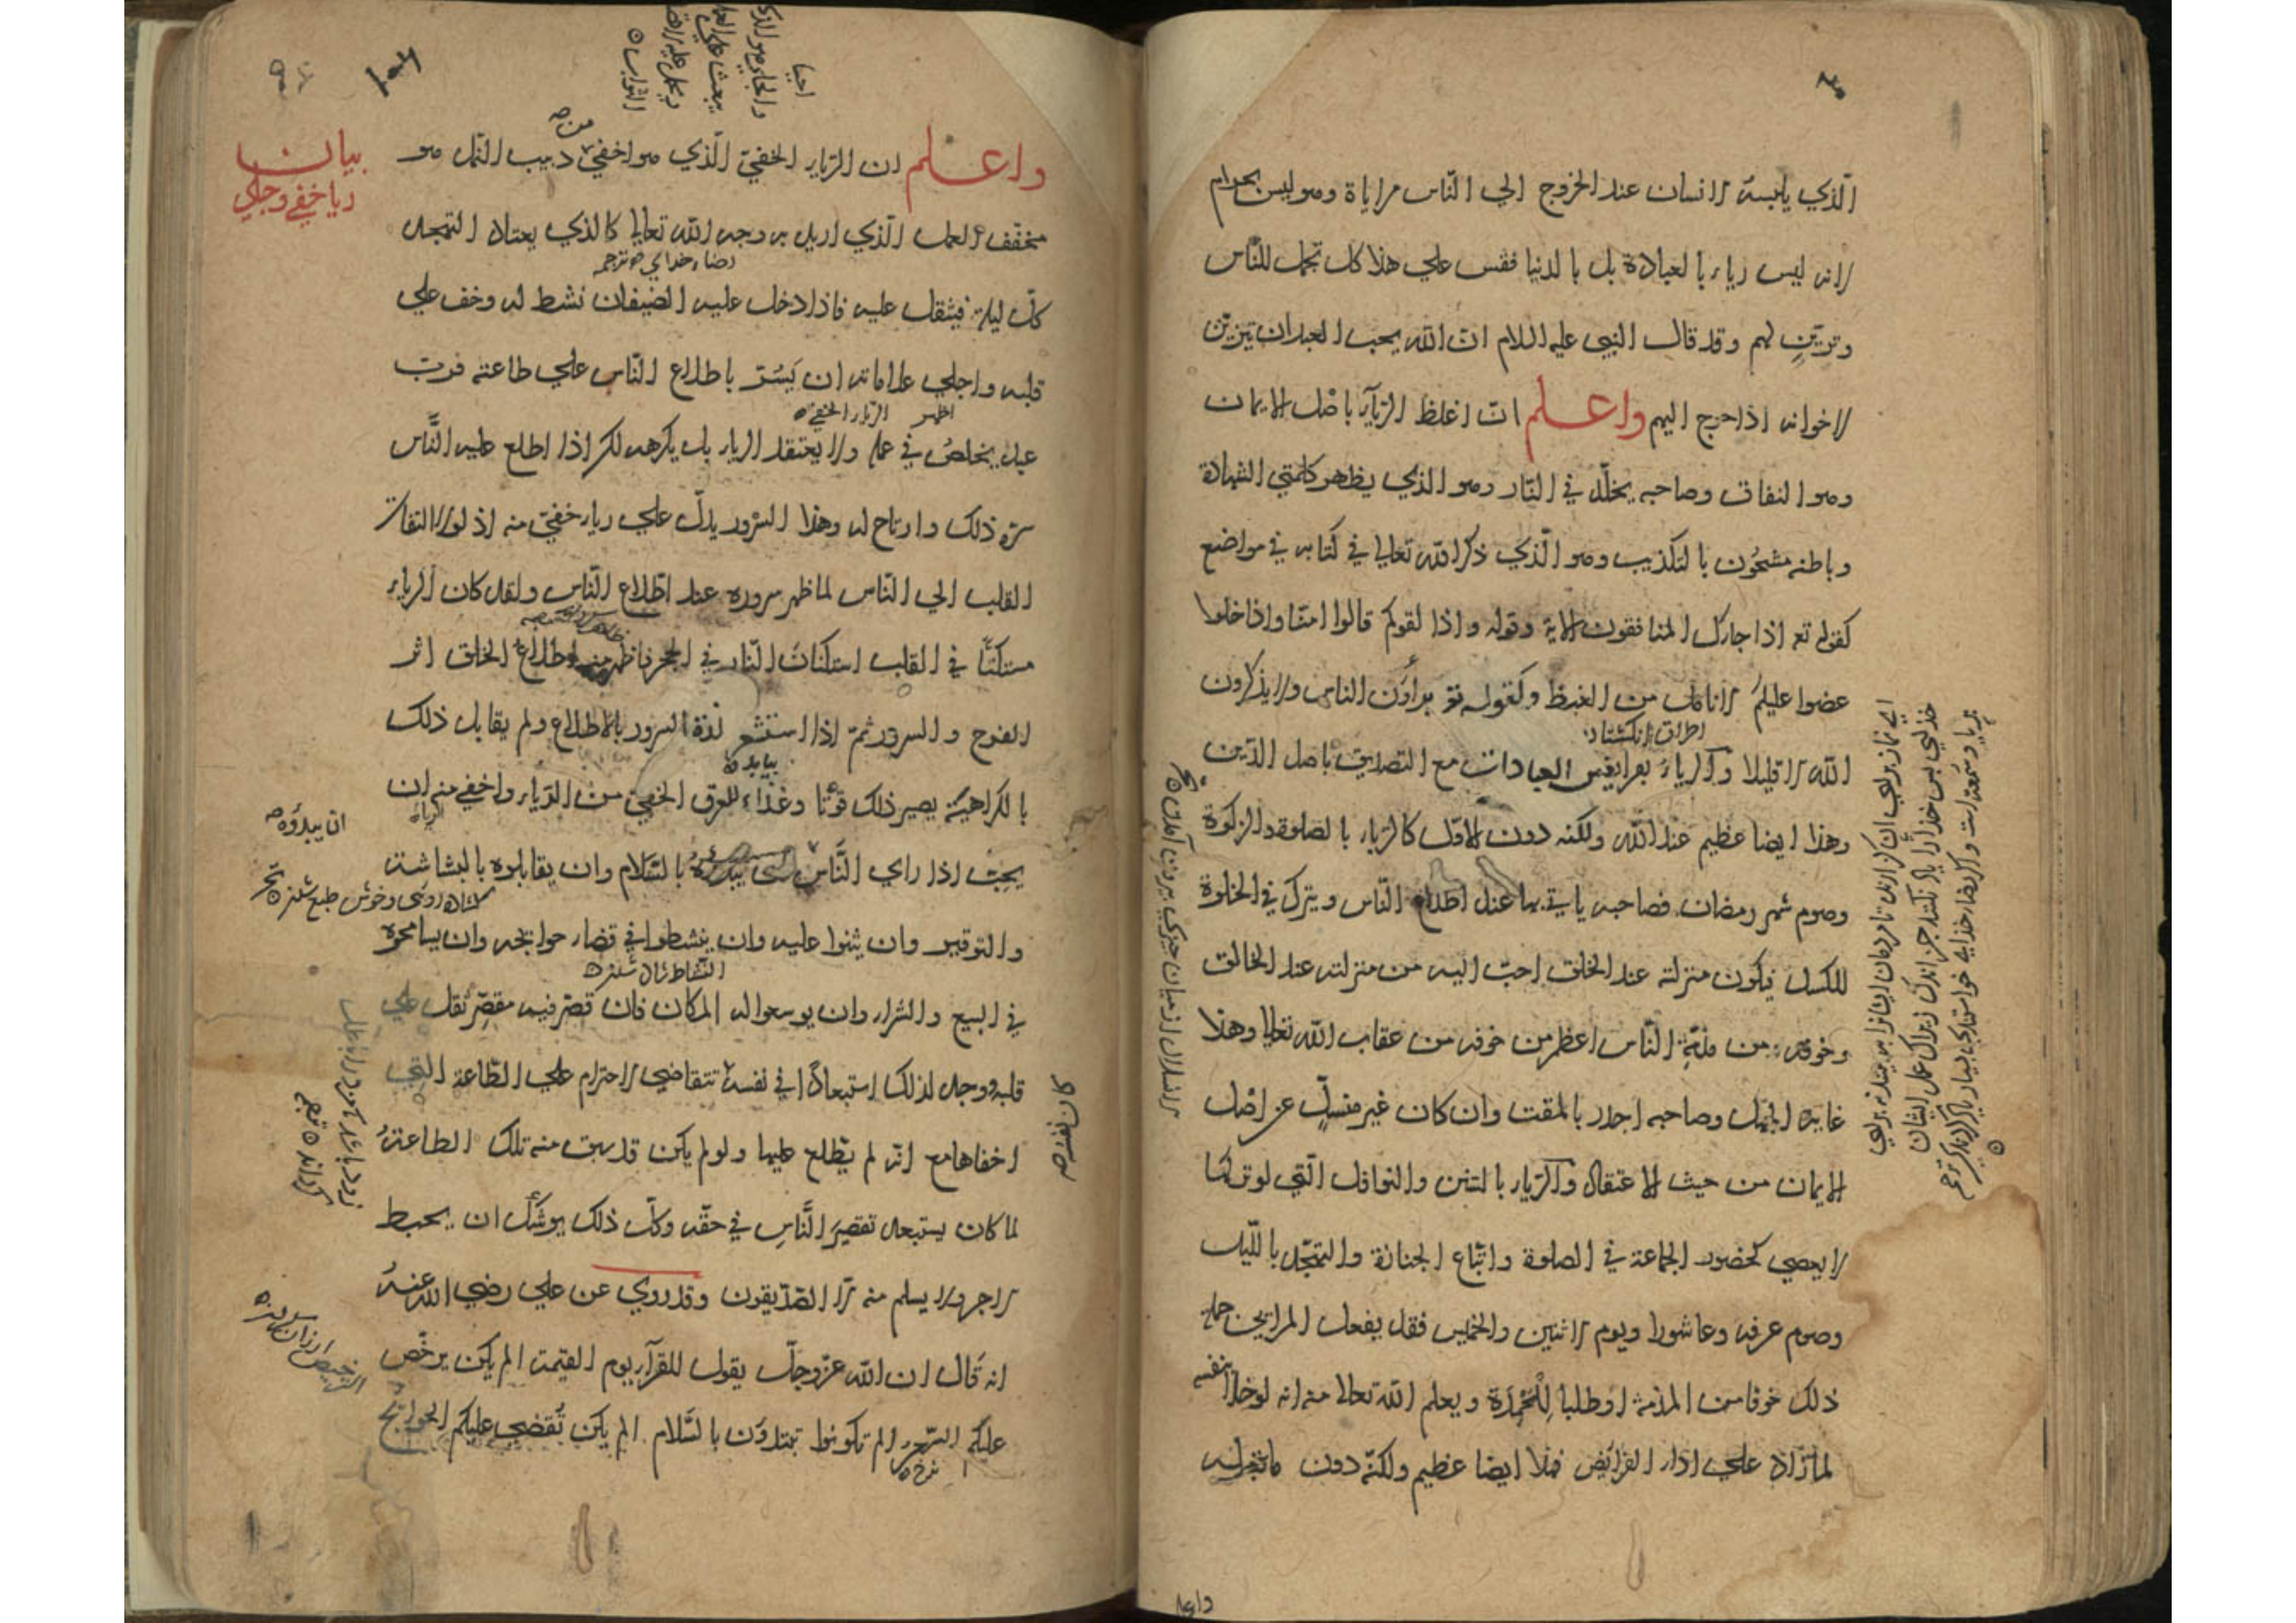 الّذي يلبسه الانسان عند الخروج الي النّاس مراياة وهو ليس بحرام
لانه ليس رياء بالعبادة بل بالدنيا فقس علي هذا كل تجمل للنّاس
وتزيّن لهم وقد قال النبي عليه السلام انّ الله يحب العبد ان يتزيّن
لاخوانه اذا خرج اليهم واعلم انّ اغلظ الريآء باصل الايمان
وهو النفاق وصاحبه يخلّد في النّار وهو الذي يظهر كلمتي الشهادة
وباطنه مشحُون بالتكذيب وهو الّذي ذكر الله تعالي في كتابه في مواضع
كقوله تع اذا جاءك المنافقون الاية وقوله واذا لقوكم قالوا امنّا واذا خلوا
عضوا عليكم الانامل من الغيظ وكقوله تع يراؤن الناس ولا يذكرون
اطراف انكشتان
الله الا قليلا والرياء بفرايض العبادات مع التصديق باصل الدّين
وهذا ايضا عظيم عند الله ولكنه دون الاوّل كالرياء بالصلوة والزكوة
وصوم شهر رمضان فصاحبه ياتي بها عند اطلاع النّاس ويترك في الخلوة
للكسل فيكون منزلته عند الخلق احبّ اليه من منزلته عند الخالق
وخوفه من مذمّة النّاس اعظم من خوفه من عقاب الله تعالي وهذا
غاية الجهل وصاحبه اجدر بالمقت وان كان غير منسلّ عن اصْل
الايمان من حيث الاعتقاد والرّياء بالسّنن والنوافل الّتي لو تركها
لا يعصي كحضور الجماعة في الصلوة واتّباع الجنازة والتهجّد باللّيل
وصوم عرفه وعاشورا ويوم الاثنين والخميس فقد يفعل المرائي جملة
ذلك خوفا من المذمّة او طلبا لِلْمَحْمَدَة ويعلم الله تعالي منه انه لو خلا بنفسه
لما زاد علي اداء الفرائض فهذا ايضا عظيم ولكنّه دون ما قبله
واعلم
الانسلال از ميان چيزي بيرون آمدن
واعلم ان الرّياء الخفيّ الّذي هو اخفيٰ من دبيب النّمل هو
بيان
ريا خفي وجلي
مخفّف العمل الّذي اريد به وجه الله تعالي كالذي يعتاد التهجد
رضاء خداي ترجمه
كلّ ليلة فيثقل عليه فاذا دخل عليه الضيفان نشط له وخف علي
قلبه واجلي علاماته ان يَسُرّ باطلاع النّاس علي طاعته فربّ
اظهر الرياء الخفي
عبد يخلصُ في عمله ولا يعتقد الرياء بل يكرهه لكن اذا اطلع عليه النَّاس
سرّه ذلك وارتاح له وهذا السّرور يدلّ علي رياء خفيّ منه اذ لولا التفات
القلب الي النّاس لما ظهر سروره عند اطّلاع النّاس ولقد كان الرياء
مستكنًّا في القلب استكنان النّار في الحجر فاظهر منه اطلاع الخلق اثر
الفرح والسرور ثمّ اذا استشعر لذة السرور بالاطلاع ولم يقابل ذلك
بيابد
بالكراهيّة يصير ذلك قوتًا وغذاء للعرق الخفيّ من الرّياء واخفي منه ان
ان يبدؤه
يحبّ اذا راي النَّاس بالسّلام وان يقابلوه بالبشاشة
كشاده روي وخوش طبع شدن
والتوقير وان يثنوا عليه وان ينشطوا في قضاء حوايجه وان يسامحوه
النشاط شاد شدن
في البيع والشراء وان يوسعوا له المكان فان قصّر فيه مقصّر ثقل علي
قلبه ووجد لذلك استبعادًا في نفسه تتقاضي الاحترام علي الطّاعة الّتي
اخفاها مع انّه لم يطّلع عليها ولو لم يكن قد سبق منه تلك الطاعة
لما كان يستبعد تقصيرَ النَّاسِ في حقّه وكلّ ذلك يوشَك ان يحبط
الاجر ولا يسلم منه الّا الصّدّيقون وقد روي عن علي رضي الله عنه
انه قال ان الله عزّوجلّ يقول للقرّآء يوم القيمة الم يكن يرخّص
الترخيص ارزان كردن
عليكم السّعر الم تكونوا تبتدؤن بالسّلام الم يكن تُقضي عليكم الحوائج
نرخ